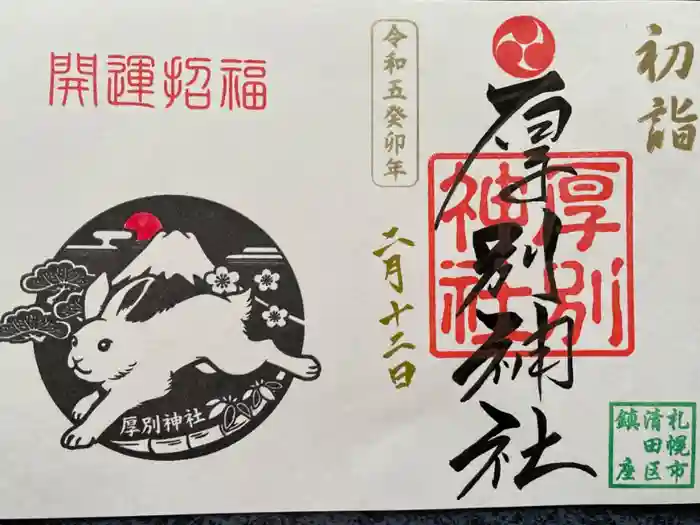 初詣
厚別神社
厚別
神社
札幌市
清田区
鎮座
令和五癸卯年
二月十二日
開運招福
厚別神社